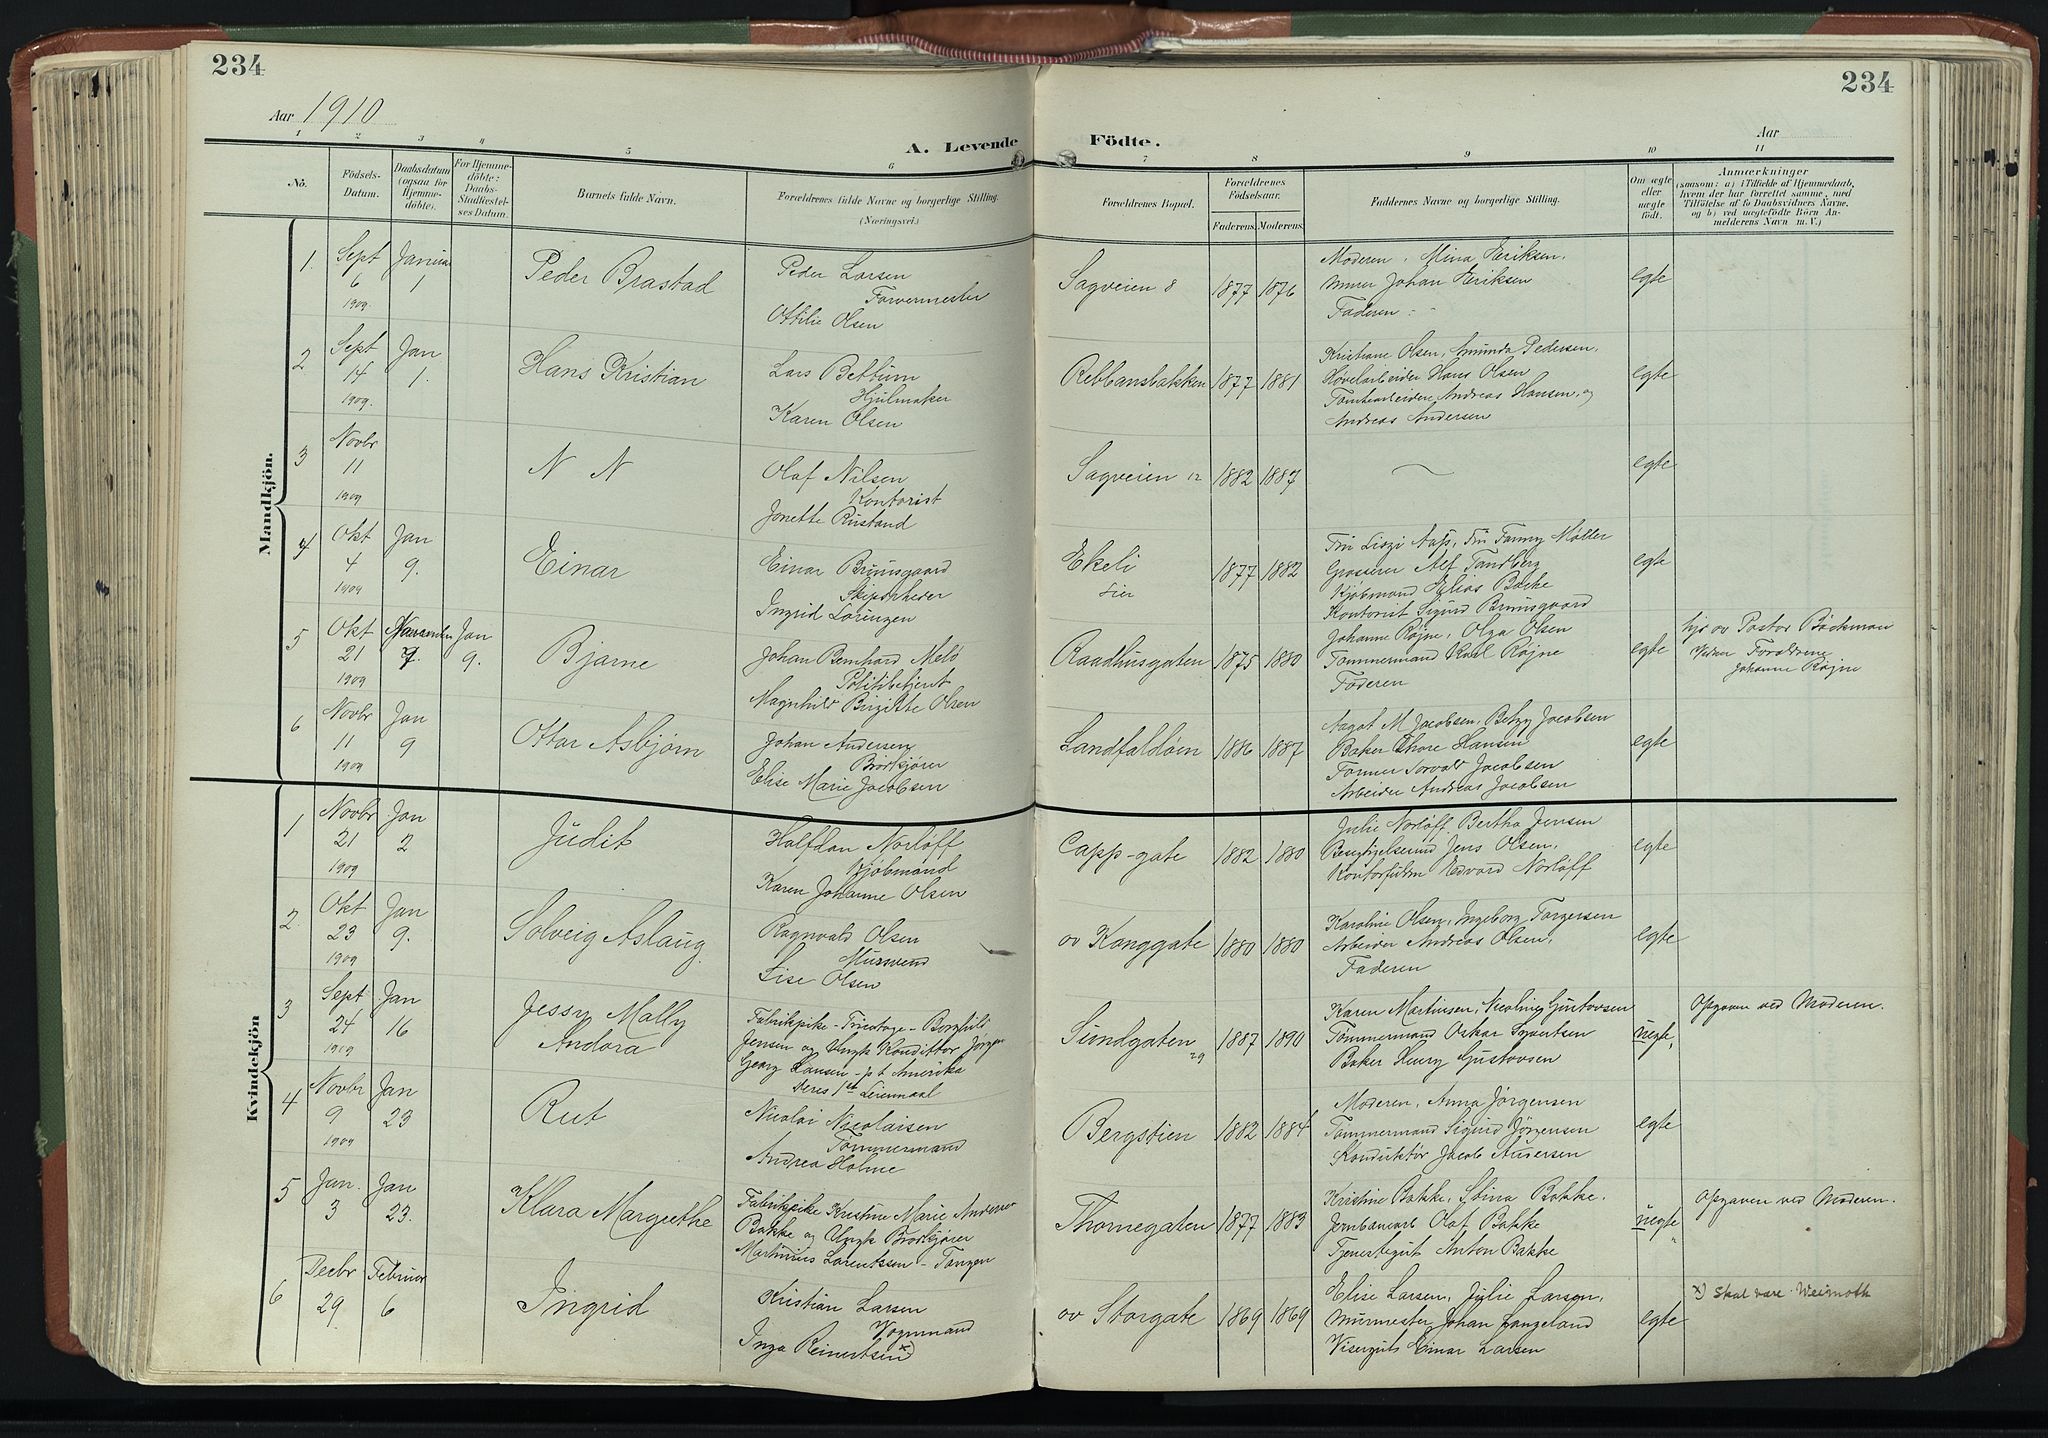 234
234
Aar 1910
Aar
A. Levende Födte.
1 2 3 4 5 6 7 8 9 10 11
No.
Födsels-
Datum.
Daabsdatum
(ogsaa for
Hjemme-
döbte).
For Hjemme-
döbte:
Daabs-
Stadfæstel-
ses Datum.
Barnets fulde Navn.
Forældrenes fulde Navne og borgerlige Stilling.
(Næringsvei.)
Forældrenes Bopæl.
Forældrenes
Födselsaar.
Faderens. Moderens.
Faddernes Navne og borgerlige Stilling.
Om ægte
eller
uægte
födt.
Anmærkninger
(saasom: a) i Tilfælde af Hjemmedaab,
hvem der har forrettet samme, med
Tilföielse af to Daabsvidners Navne,
og b) ved uægtefödte Börn An-
melderens Navn m. V.)
Mandkjön.
1. Sept 6 1909 Januar 1 Peder Brastad
Peder Larsen
Farvermester
Ottilie Olsen
Sagveien 8 1877 1876
Moderen, Mina Eriksen,
Murer Johan Eriksen
Faderen
egte
2 Sept 14 1909. Jan 1. Hans Kristian
Lars Bettum
Hjulmaker
Karen Olsen
Rebbansbakken 1877 1881
Kristiane Olsen, Amunda Pedersen,
Høvelarbeider Hans Olsen
Tomtearbeidere Andreas Hansen, og
Andreas Andersen
egte
3 Novbr 11 1909 N N
Olaf Nilsen
Kontorist
Jonette Rustand
Sagveien 12 1882 1887
egte
4 Okt 4 1909 Jan 9. Einar
Einar Bruusgaard
Skipsreder
Ingrid Lorenzen
Ekeli
Lier
1877 1882
Fru Liszi Aass, Fru Fanny Møller
Grosserer Alf Tandberg
Kjøbmand Elias Bache
Kontorist Sigurd Bruusgaard
egte
5 Okt 21 1909 7. Jan 9. Bjarne
Johan Bernhard Melø
Politibetjent
Magnhild Birgitte Olsen
Raadhusgaten 1875 1880
Johanne Røjne, Olga Olsen
Tømmermand Karl Røjne
Faderen
egte
hjd av Pastor Böckman
Vidner Forældrene
Johanne Røjne
6 Novbr 11 1909 Jan 9 Ottar Asbjørn
Johan Andersen
Brødkjører
Elise Marie Jacobsen
Landfaldøen 1886 1887
Aagot M Jacobsen, Betzy Jacobsen
Baker Thore Hansen
Tømmer Torvald Jacobsen
Arbeider Andreas Jacobsen
egte
Kvindekjön
1 Novbr 21 1909 Jan 2 Judit
Halfdan Norløff
Kjøbmand
Karen Johanne Olsen
Capp-gate 1882 1880
Julie Norløff, Bertha Jensen
Jens Olsen,
Edvard Norløff
egte
2. Okt 23 1909 Jan 9. Solveig Aslaug.
Ragnvald Olsen
Mursvend
Lise Olsen
ov Konggate 1880 1880
Karoline Olsen, Ingeborg Torgersen
Arbeider Andreas Olsen,
Faderen
egte
3 Sept 24 1909 Jan 16 Jessy Mally
Andora
Fabrikpike - Tricotage - Borghild
Jensen og Ungk Konditor Jørgen
Georg Hansen - pt Amerika
Deres 1ste Leiermaal
Sundgaten 29 1887 1890
Karen Martinsen, Nicoline Gustavsen
Tømmermand Oskar Syvertsen
Baker Henry Gustavsen
uegte,
Opgaven ved Moderen.
4 Novbr 9 1909 Jan 23 Rut
Nicolai Nicolaisen
Tømmermand
Andrea Holme
Bergstien 1882 1884
Moderen, Anna Jørgensen
Tømmermand Sigurd Jørgensen
Konduktør Jacob Andersen
egte
5 Jan. 3 Jan 23. Klara Margrethe
Fabrikpike Kristine Marie Andersen
Bakke og Ungk Brødkjører
Martinius Larentssen - Tangen
Thornegaten 1877 1883
Kristine Bakke, Stina Bakke.
Jernbanearb Olaf Bakke
Tjenestegut Anton Bakke
uegte
Opgaven ved Moderen.
6 Decbr 29 Februar 6 Ingrid
Kristian Larsen
Vognmand
Inga Reinertsen x)
ov Storgate 1869 1869
Elise Larsen, Julie Larsen,
Murmester Johan Langeland
Visergut Einar Larsen
egte
x) Skal være Weimoth